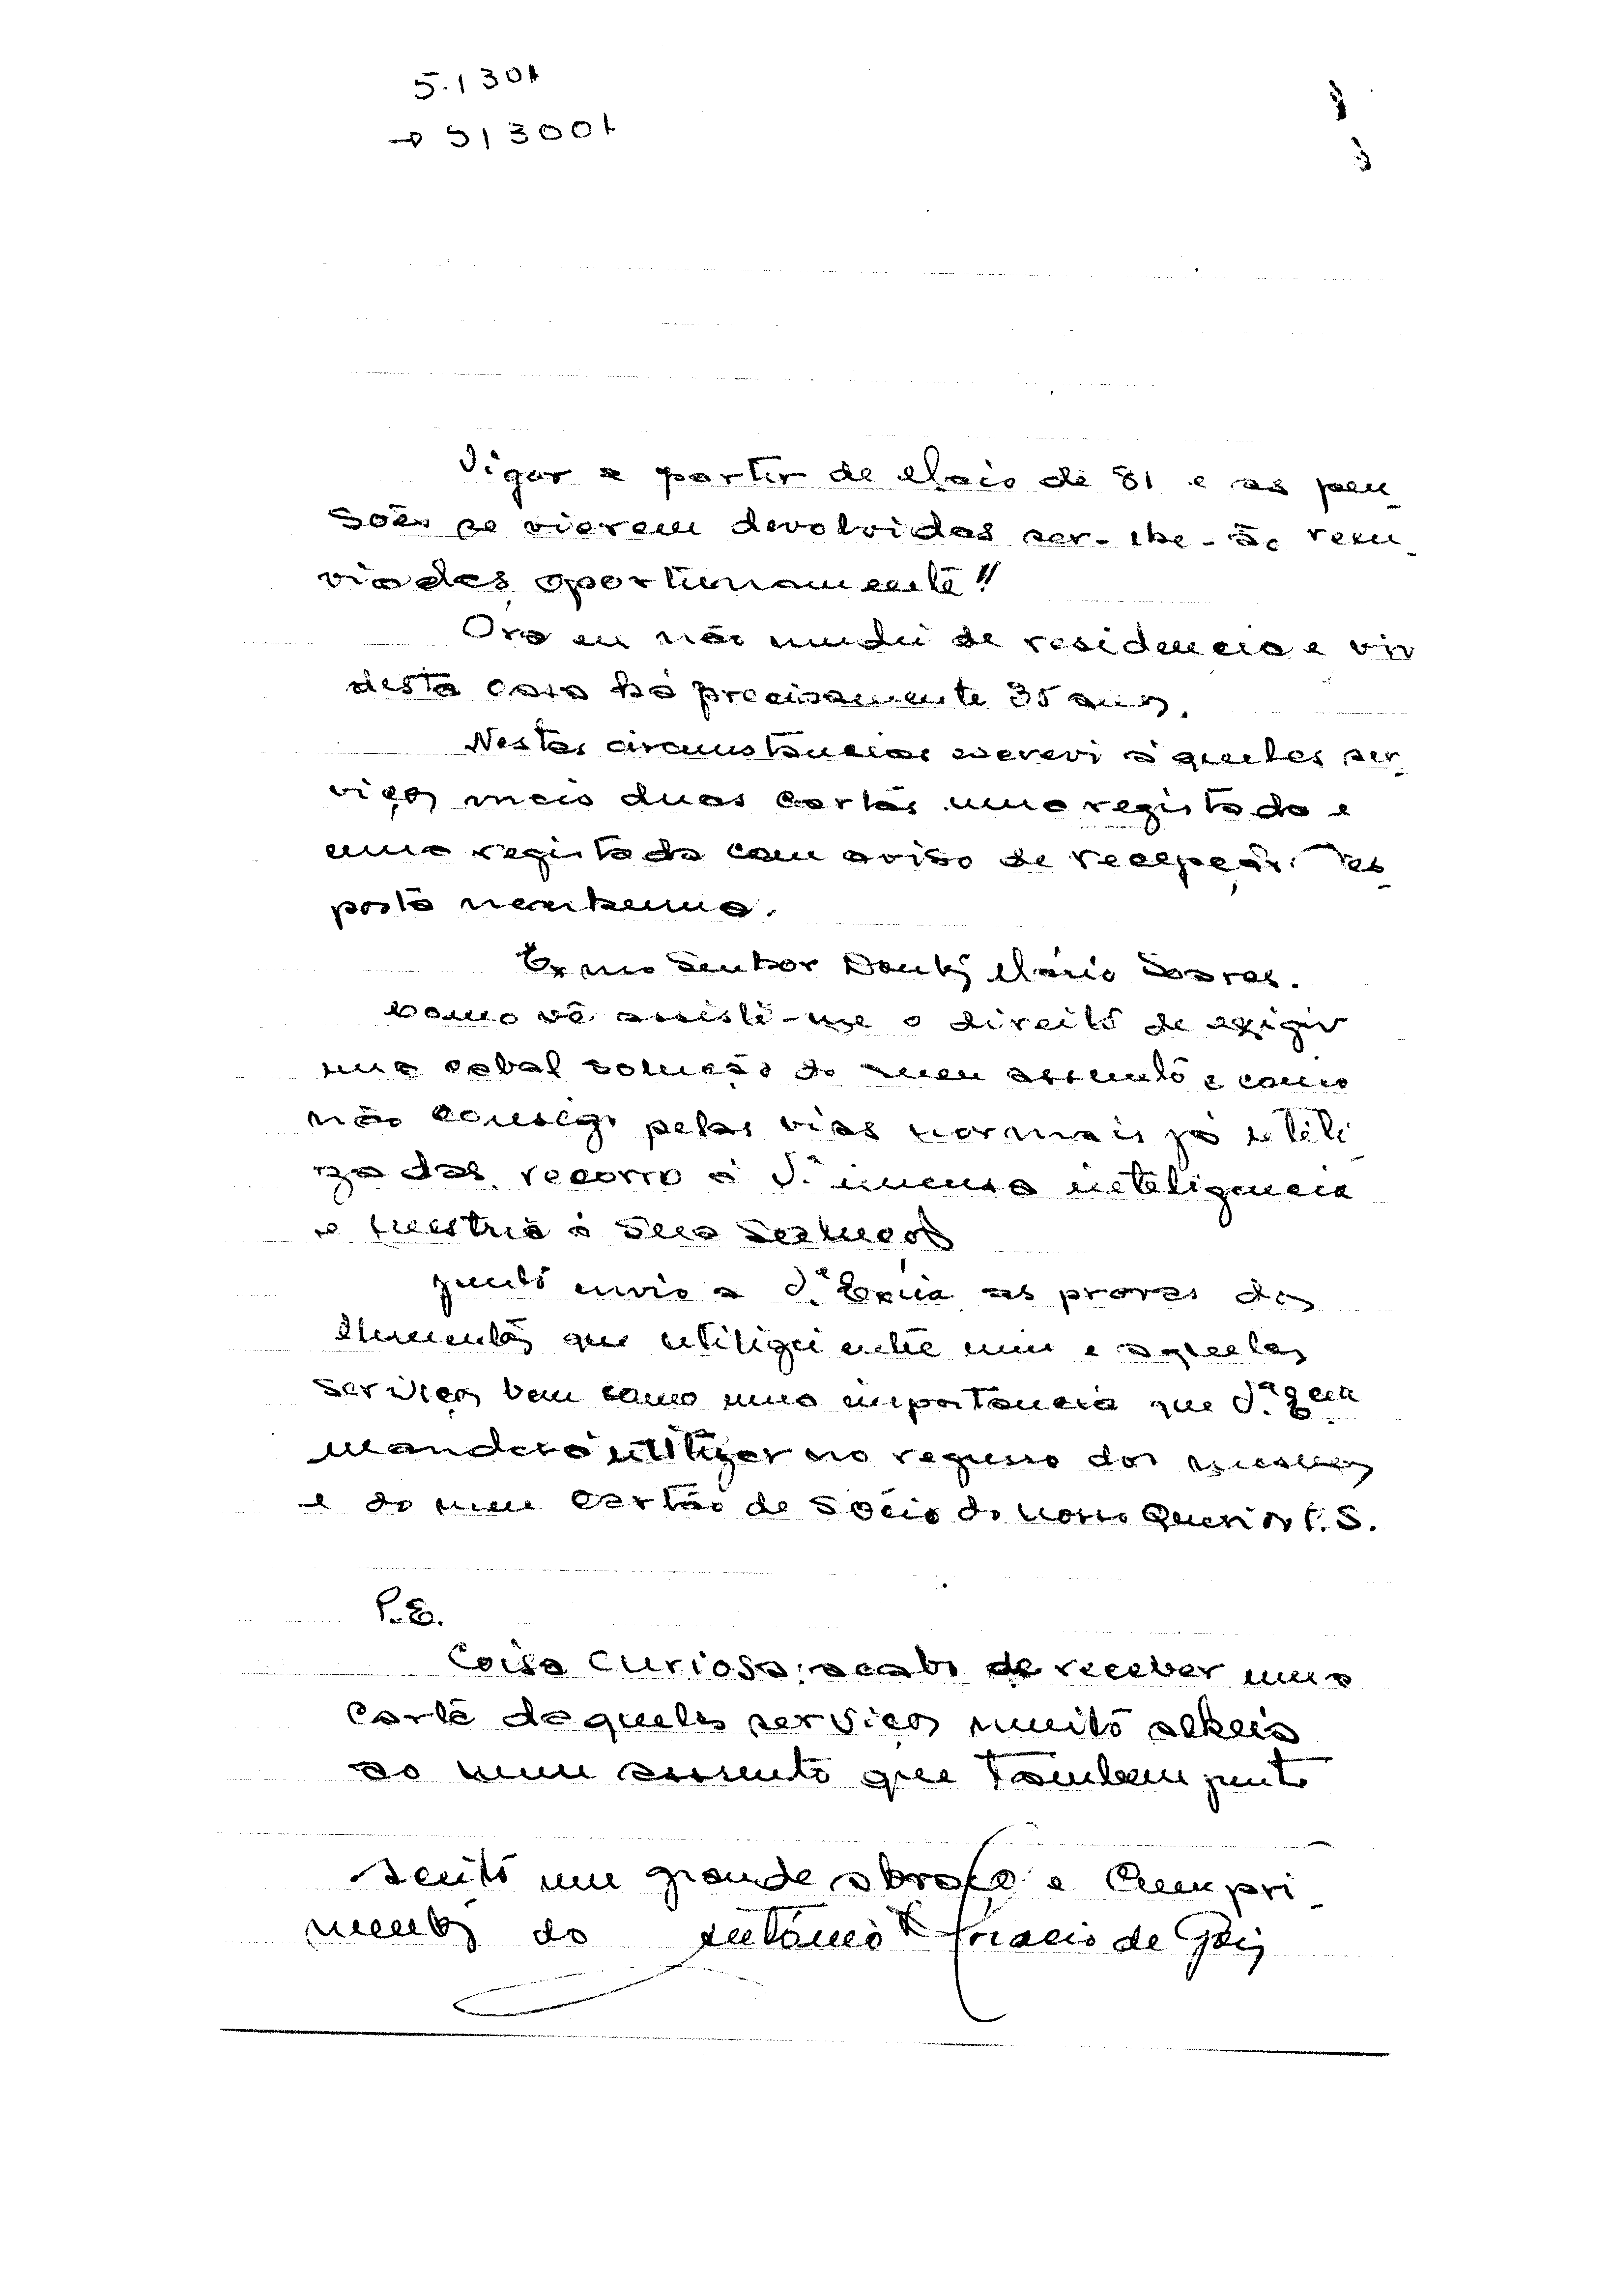 5.1301
→ 513001
Vigor a partir de Maio de 81 e as pen-
sões se vierem devolvidas ser-lhe-ão reen-
viadas oportunamente!!
Ora eu não mudei de residencia e viv
desta casa há precisamente 35 anos.
Nestas circunstancias escrevi áqueles ser-
viços mais duas cartas uma registada e
uma registada com aviso de recepção. Res-
posta nenhuma.
Exmo Senhor Doutor Mário Soares.
Como vê assiste-me o direito de exigir
uma cabal solução do meu assunto e como
não consigo pelas vias normais já utili-
zadas, recorro á V.ª imensa inteligencia
e mestria a sua solução
Junto envio a V.ª Excia as provas dos
elementos que utilizei entre mim e aqueles
serviços bem como uma importancia que V.ª Excia
mandará utilizar no regresso dos mesmos
e do meu cartão de sócio do nosso Querido P.S.
P.S.
Coisa curiosa: acabo de receber uma
carta daqueles serviços muito alheia
ao meu assunto que tambem junto
Aceite um grande abraço e Cumpri-
mentos do António Inacio de Gois